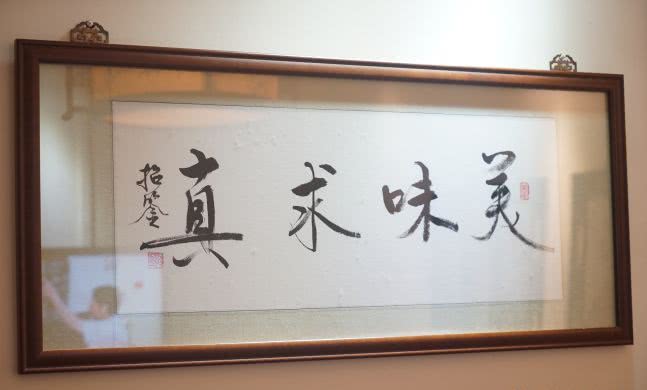 美味求真